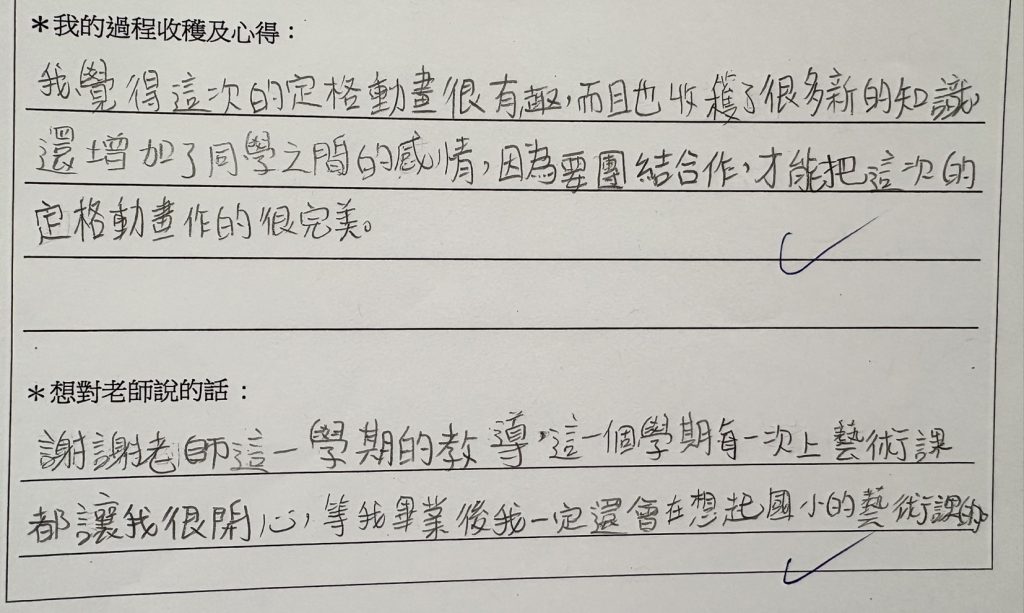 ＊我的過程收穫及心得：
我覺得這次的定格動畫很有趣，而且也收穫了很多新的知識，
還增加了同學之間的感情，因為要團結合作，才能把這次的
定格動畫作的很完美。
＊想對老師說的話：
謝謝老師這一學期的教導，這一個學期每一次上藝術課
都讓我很開心，等我畢業後我一定還會在想起國小的藝術課的